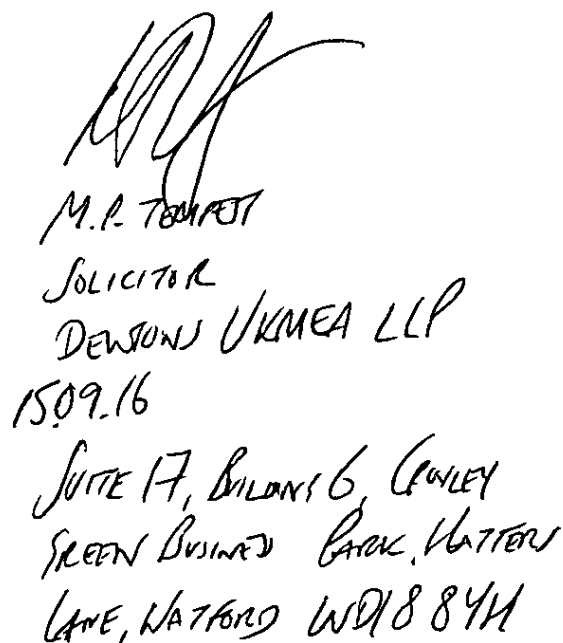 M.P. TEMPEST
SOLICITOR
DENTONS UKMEA LLP
15.09.16
SUITE 17, BUILDING 6, CROXLEY
GREEN BUSINESS PARK, HATTERS
LANE, WATFORD WD18 8YH